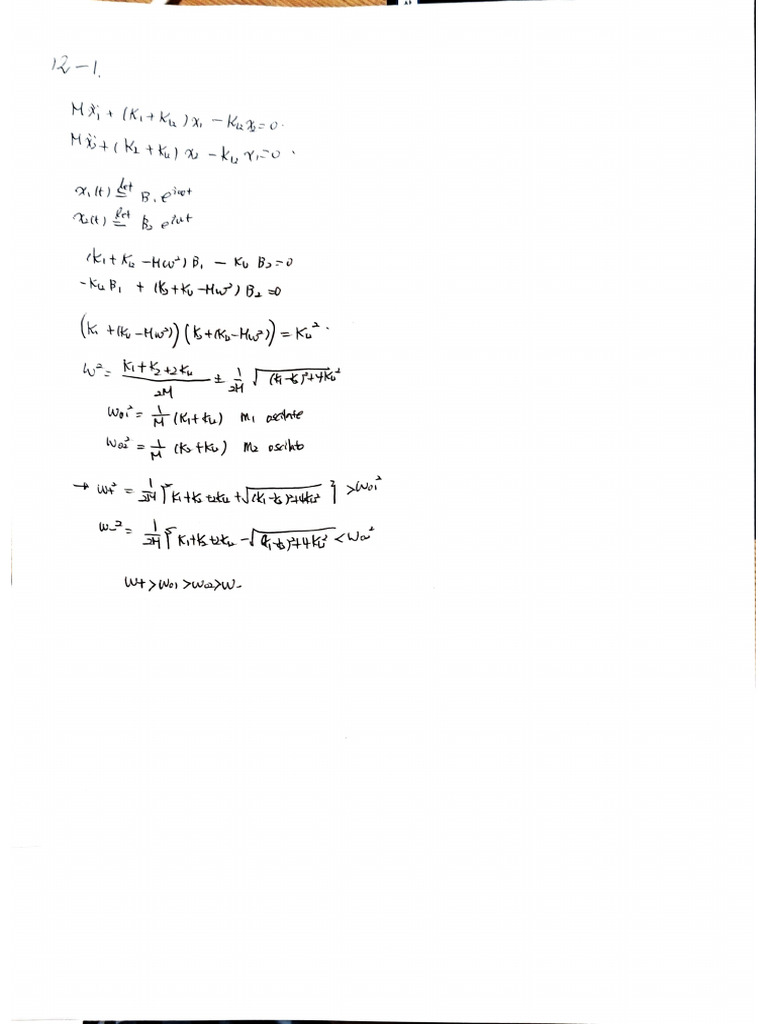 12-1.
Mẍ₁ + (K₁+K₁₂)x₁ - K₁₂x₂=0.
Mẍ₂+(K₂+K₁₂)x₂ - K₁₂x₁=0.
x₁(t) let= B₁e^{iωt}
x₂(t) let= B₂e^{iωt}
(K₁+K₁₂-Mω²)B₁ - K₁₂B₂=0
-K₁₂B₁ + (K₂+K₁₂-Mω²)B₂=0
(K₁+(K₁₂-Mω²))(K₂+(K₁₂-Mω²))=K₁₂².
ω²= (K₁+K₂+2K₁₂)/2M ± 1/2M √((K₁-K₂)²+4K₁₂²)
ω₀₁² = 1/M (K₁+K₁₂) m₁ oscillate
ω₀₂² = 1/M (K₂+K₁₂) m₂
→ ω₊² = 1/2M {K₁+K₂+2K₁₂+√((K₁-K₂)²+4K₁₂²)} >ω₀₁²
ω₋² = 1/2M {K₁+K₂+2K₁₂-√((K₁-K₂)²+4K₁₂²) <ω₀₂²
ω₊>ω₀₁>ω₀₂>ω₋